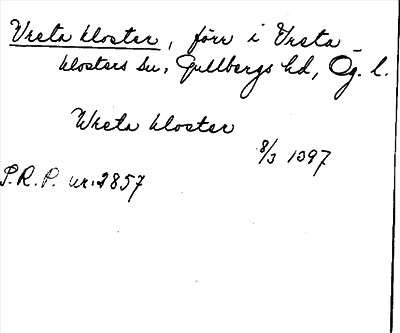 Vreta kloster, förr i Vreta
klosters sn, Gullbergs hd, Ög. l.
Wreta kloster
8/3 1397
P.R.P. nr. 2857